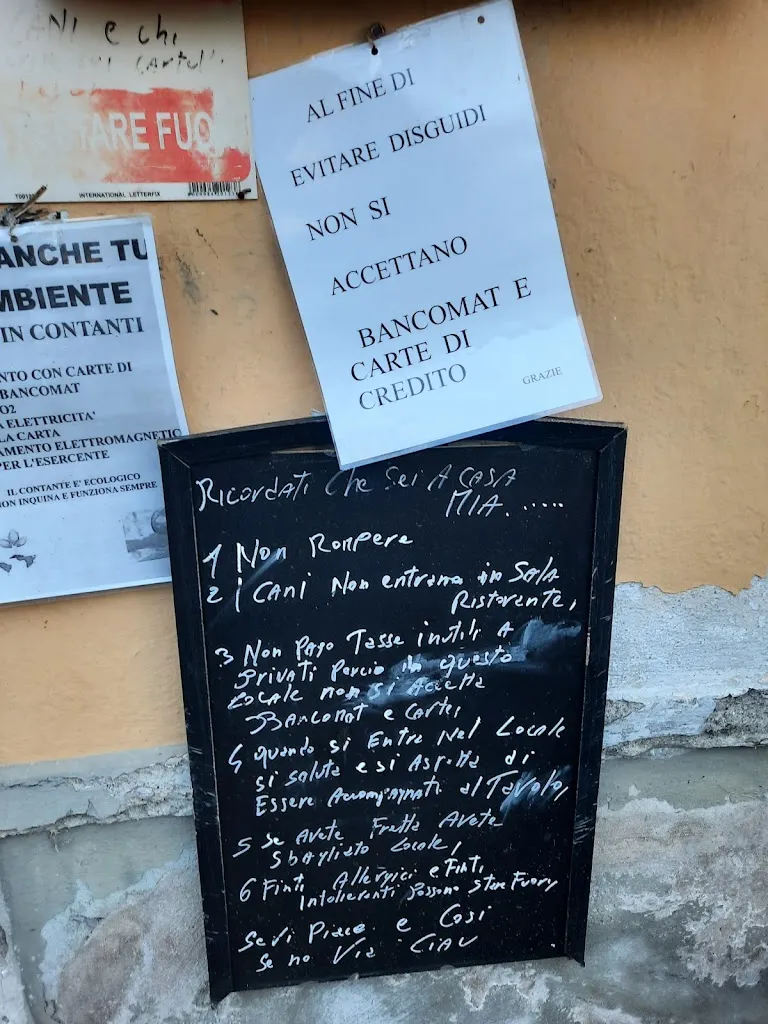 ANI e chi
cartel
TARE FUO
INTERNATIONAL LETTERFIX
AL FINE DI
EVITARE DISGUIDI
NON SI
ACCETTANO
BANCOMAT E
CARTE DI
CREDITO
GRAZIE
ANCHE TU
MBIENTE
IN CONTANTI
NTO CON CARTE DI
BANCOMAT
O2
A ELETTRICITA'
LA CARTA
AMENTO ELETTROMAGNETIC
PER L'ESERCENTE
IL CONTANTE E' ECOLOGICO
NON INQUINA E FUNZIONA SEMPRE
Ricordati che sei A CASA
MIA......
1 Non Rompere
2 I CANI Non entrano in SALA
Ristorante,
3 Non Pago Tasse inutili A
privati percio in questo
Locale non si Accetta
Bancomat e Carte,
4 quando si Entra Nel Locale
si saluta e si Aspetta di
Essere Accompagnati al Tavolo,
5 Se Avete Fretta Avete
Sbagliato Locale,
6 Finti Allergici e Finti,
Intolleranti Possono Stare Fuory
Se vi Piace e Così
Se no Via CIAU